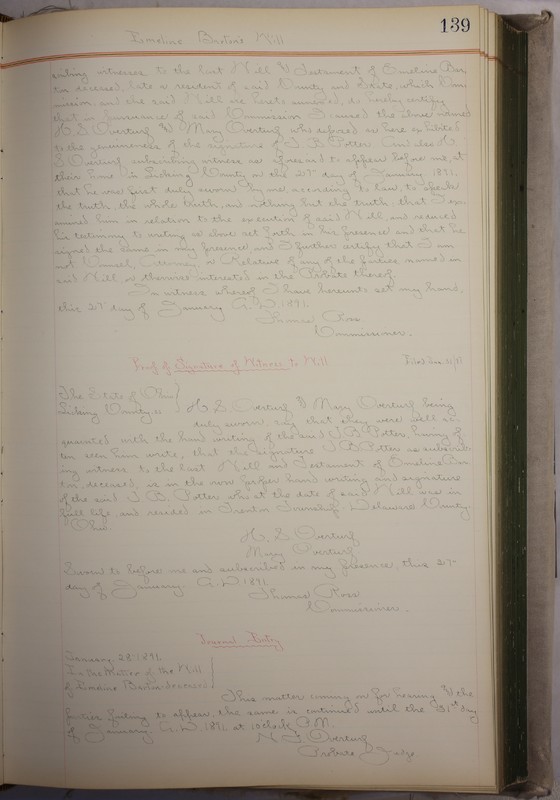 139
Emeline Barton's Will
cribing witnesses to the last Will & Testament of Emeline Bar-
ton deceased, late a resident of said County and State, which Com-
mission, and the said Will are hereto annexed, do hereby certify
that in pursuance of said Commission I caused the above named
H. S. Overturf & Mary Overturf who deposed as here exhibited
to the genuineness of the signature of J. B. Potter. And also H.
S. Overturf subscribing witness as aforesaid to appear before me, at
their home in Licking County on the 27" day of January 1891,
that he was first duly sworn by me, according to law, to speak
the truth, the whole truth, and nothing but the truth, that I ex-
amined him in relation to the execution of said Will, and reduced
his testimony to writing as above set forth in his presence and that he
signed the same in my presence and I further certify that I am
not Counsel, Attorney, or Relative of any of the parties named in
said Will, or otherwise interested in the Probate thereof.
In witness whereof I have hereunto set my hand,
this 27" day of January A.D. 1891.
Thomas Ross
Commissioner.
Proof of Signature of Witness to Will
Filed Jan. 31/91
The State of Ohio
Licking County ss H. S. Overturf & Mary Overturf being
duly sworn, say that they were well ac-
quainted with the hand writing of the said J. B. Potter, having of-
ten seen him write, that the signature J. B. Potter as subscrib-
ing witness to the last Will and Testament of Emeline Bar-
ton, deceased, is in the own proper hand writing and signature
of the said J. B. Potter who at the date of said Will was in
full life, and resided in Trenton Township, Delaware County,
Ohio.
H. S. Overturf
Mary Overturf
Sworn to before me and subscribed in my presence, this 27"
day of January. A.D. 1891.
Thomas Ross
Commissioner.
Journal Entry
January 28 1891.
In the Matter of the Will
of Emeline Barton deceased
This matter coming on for hearing & the
parties failing to appear, the same is continued until the 31st day
of January A.D. 1891 at 1 o'clock P.M.
N. F. Overturf
Probate Judge